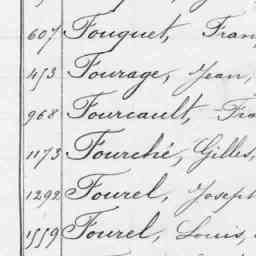 607 Fouquet, Fran
453 Fourage, Jean,
968 Fourcault, Fra
1173 Fourché, Gilles,
1292 Fourel, Joseph
1559 Fourel, Louis,